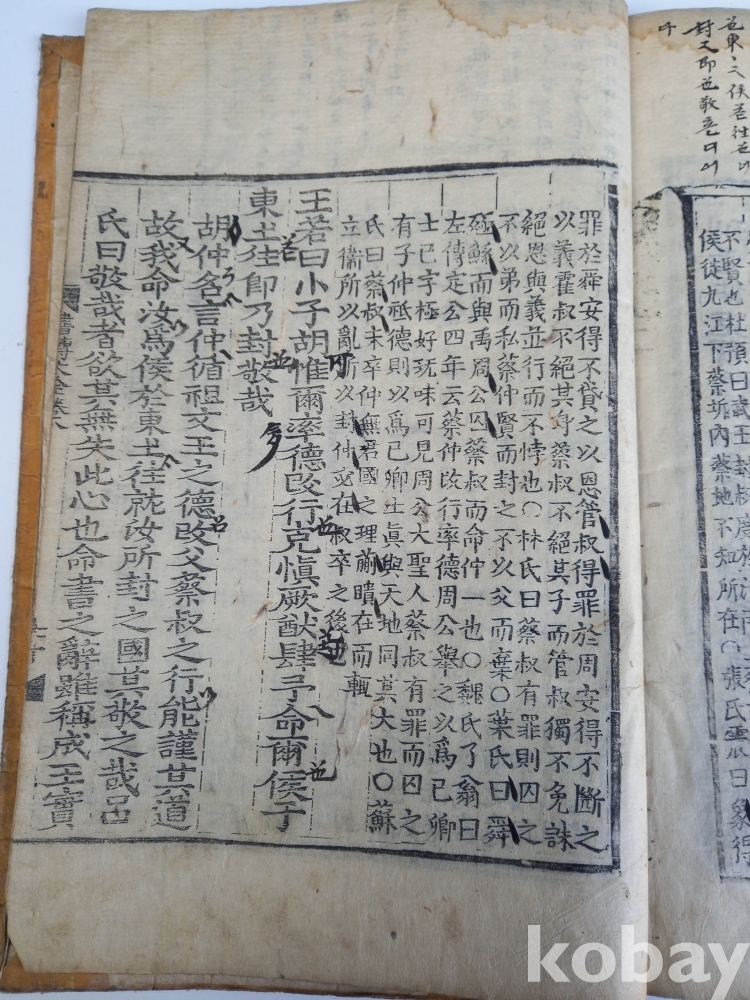 不賢也杜預曰武王封叔度
侯徙九江下蔡圻內蔡地不知所在○張氏震曰象得
罪於舜安得不貸之以恩管叔得罪於周安得不斷之
以義霍叔不絕其身蔡叔不絕其子而管叔獨不免誅
絕恩與義並行而不悖也○林氏曰蔡叔有罪則囚之
不以弟而私蔡仲賢而封之不以父而棄○葉氏曰舜
殛鯀而與禹周公囚蔡叔而命仲一也○魏氏了翁曰
左傳定公四年云蔡仲改行率德周公舉之以爲已卿
士已字極好玩味可見周公大聖人蔡叔有罪而囚之
有子仲祗德則以爲已卿士眞與天地同其大也○蘇
氏曰蔡叔未卒仲無君國之理蒯聵在而輒
立衞所以亂所以封仲必在叔卒之後也
王若曰小子胡惟爾率德改行克愼厥猷肆予命爾侯于
東土往卽乃封敬哉
胡仲名言仲循祖文王之德改父蔡叔之行能謹其道
故我命汝爲侯於東土往就汝所封之國其敬之哉呂
氏曰敬哉者欲其無失此心也命書之辭雖稱成王實
書傳大全卷八
kobay